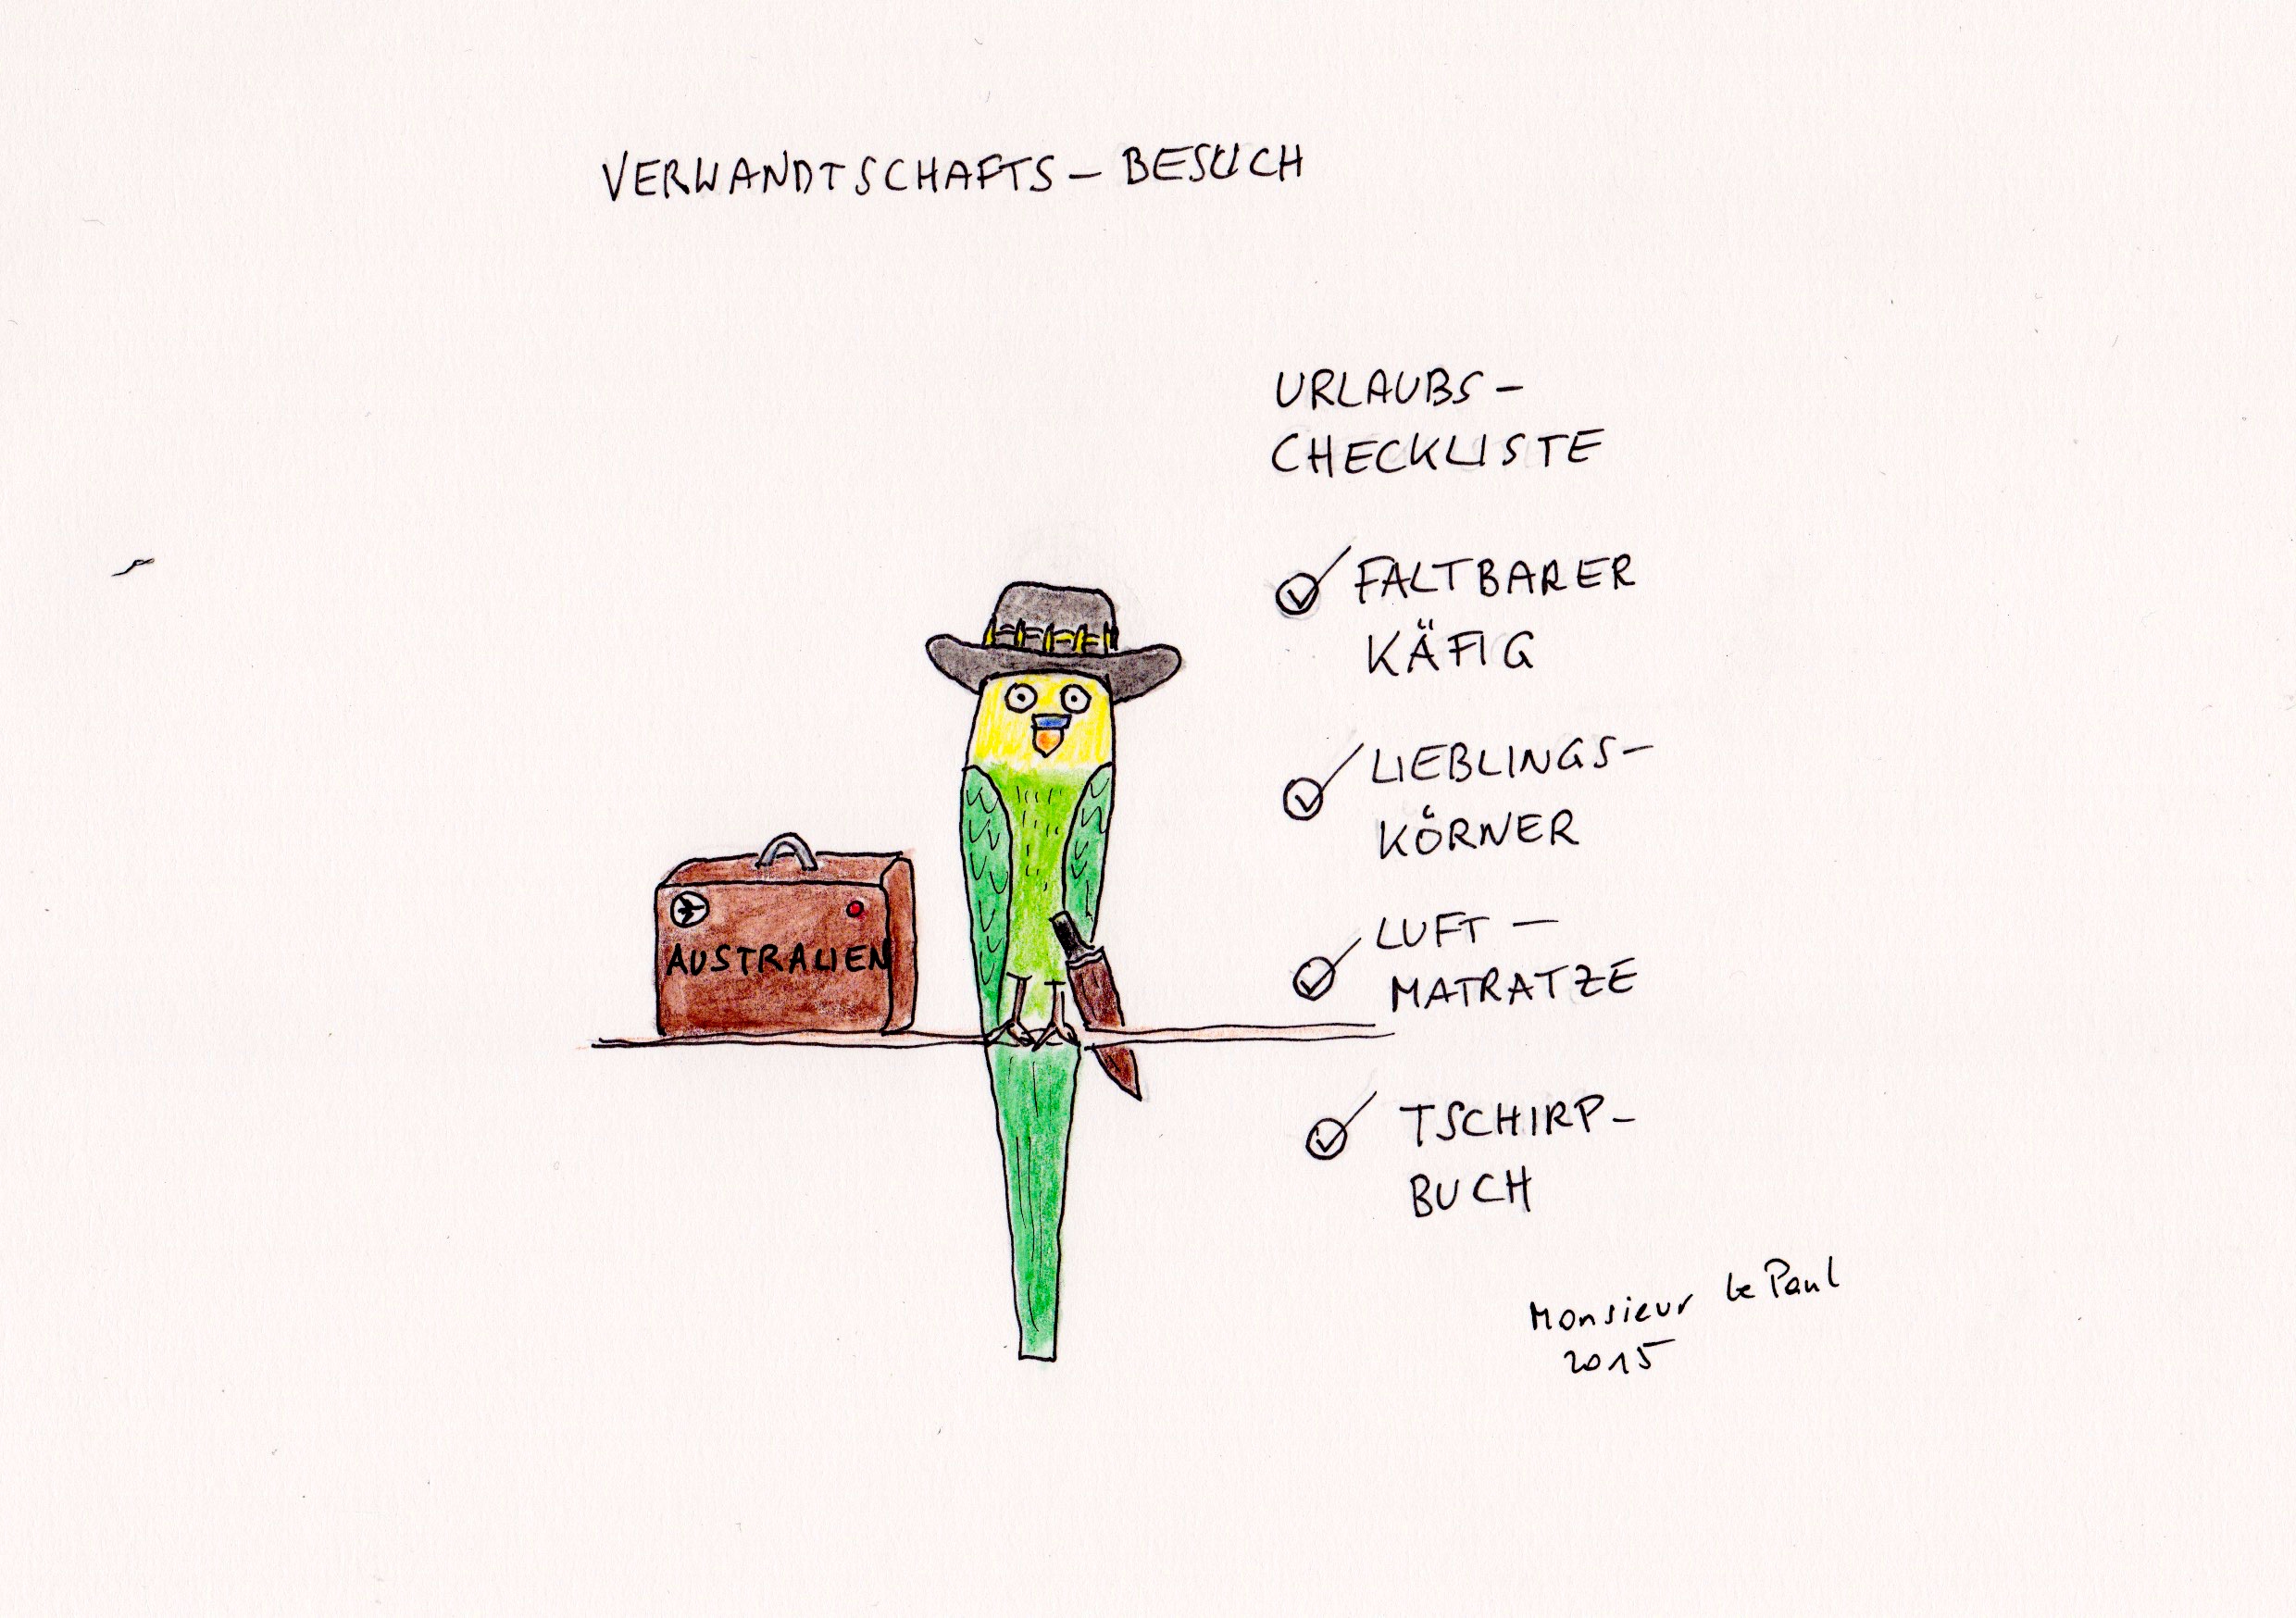 VERWANDTSCHAFTS-BESUCH
URLAUBS-
CHECKLISTE
FALTBARER
KÄFIG
LIEBLINGS-
KÖRNER
LUFT-
MATRATZE
AUSTRALIEN
TSCHIRP-
BUCH
Monsieur le Paul
2015